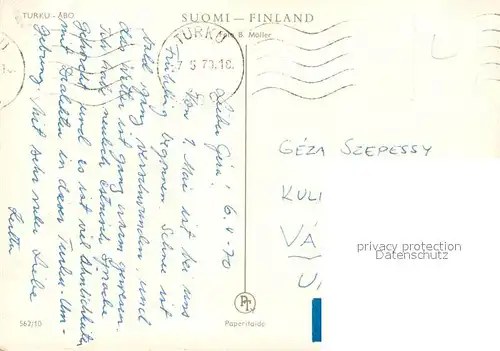 TURKU - ÅBO
SUOMI — FINLAND
B. Möller
TURKU
7 5 70.18.
6.V.70
Lieber Géza!
Von 1. Mai ist bei uns
Frühling begonnen. Schnee ist
bald ganz verschwunden und
das Wetter ist ganz warm gewesen.
Ich habe neulich Estnische Sprache
gehört und es ist viel Ähnlichkeiten
mit Dialekten in dieser Turku Um-
gebung. Mit sehr viele Liebe
GÉZA SZEPESSY
KULI
VÁ
U
privacy protection
Datenschutz
PT
Paperitaide
562/10